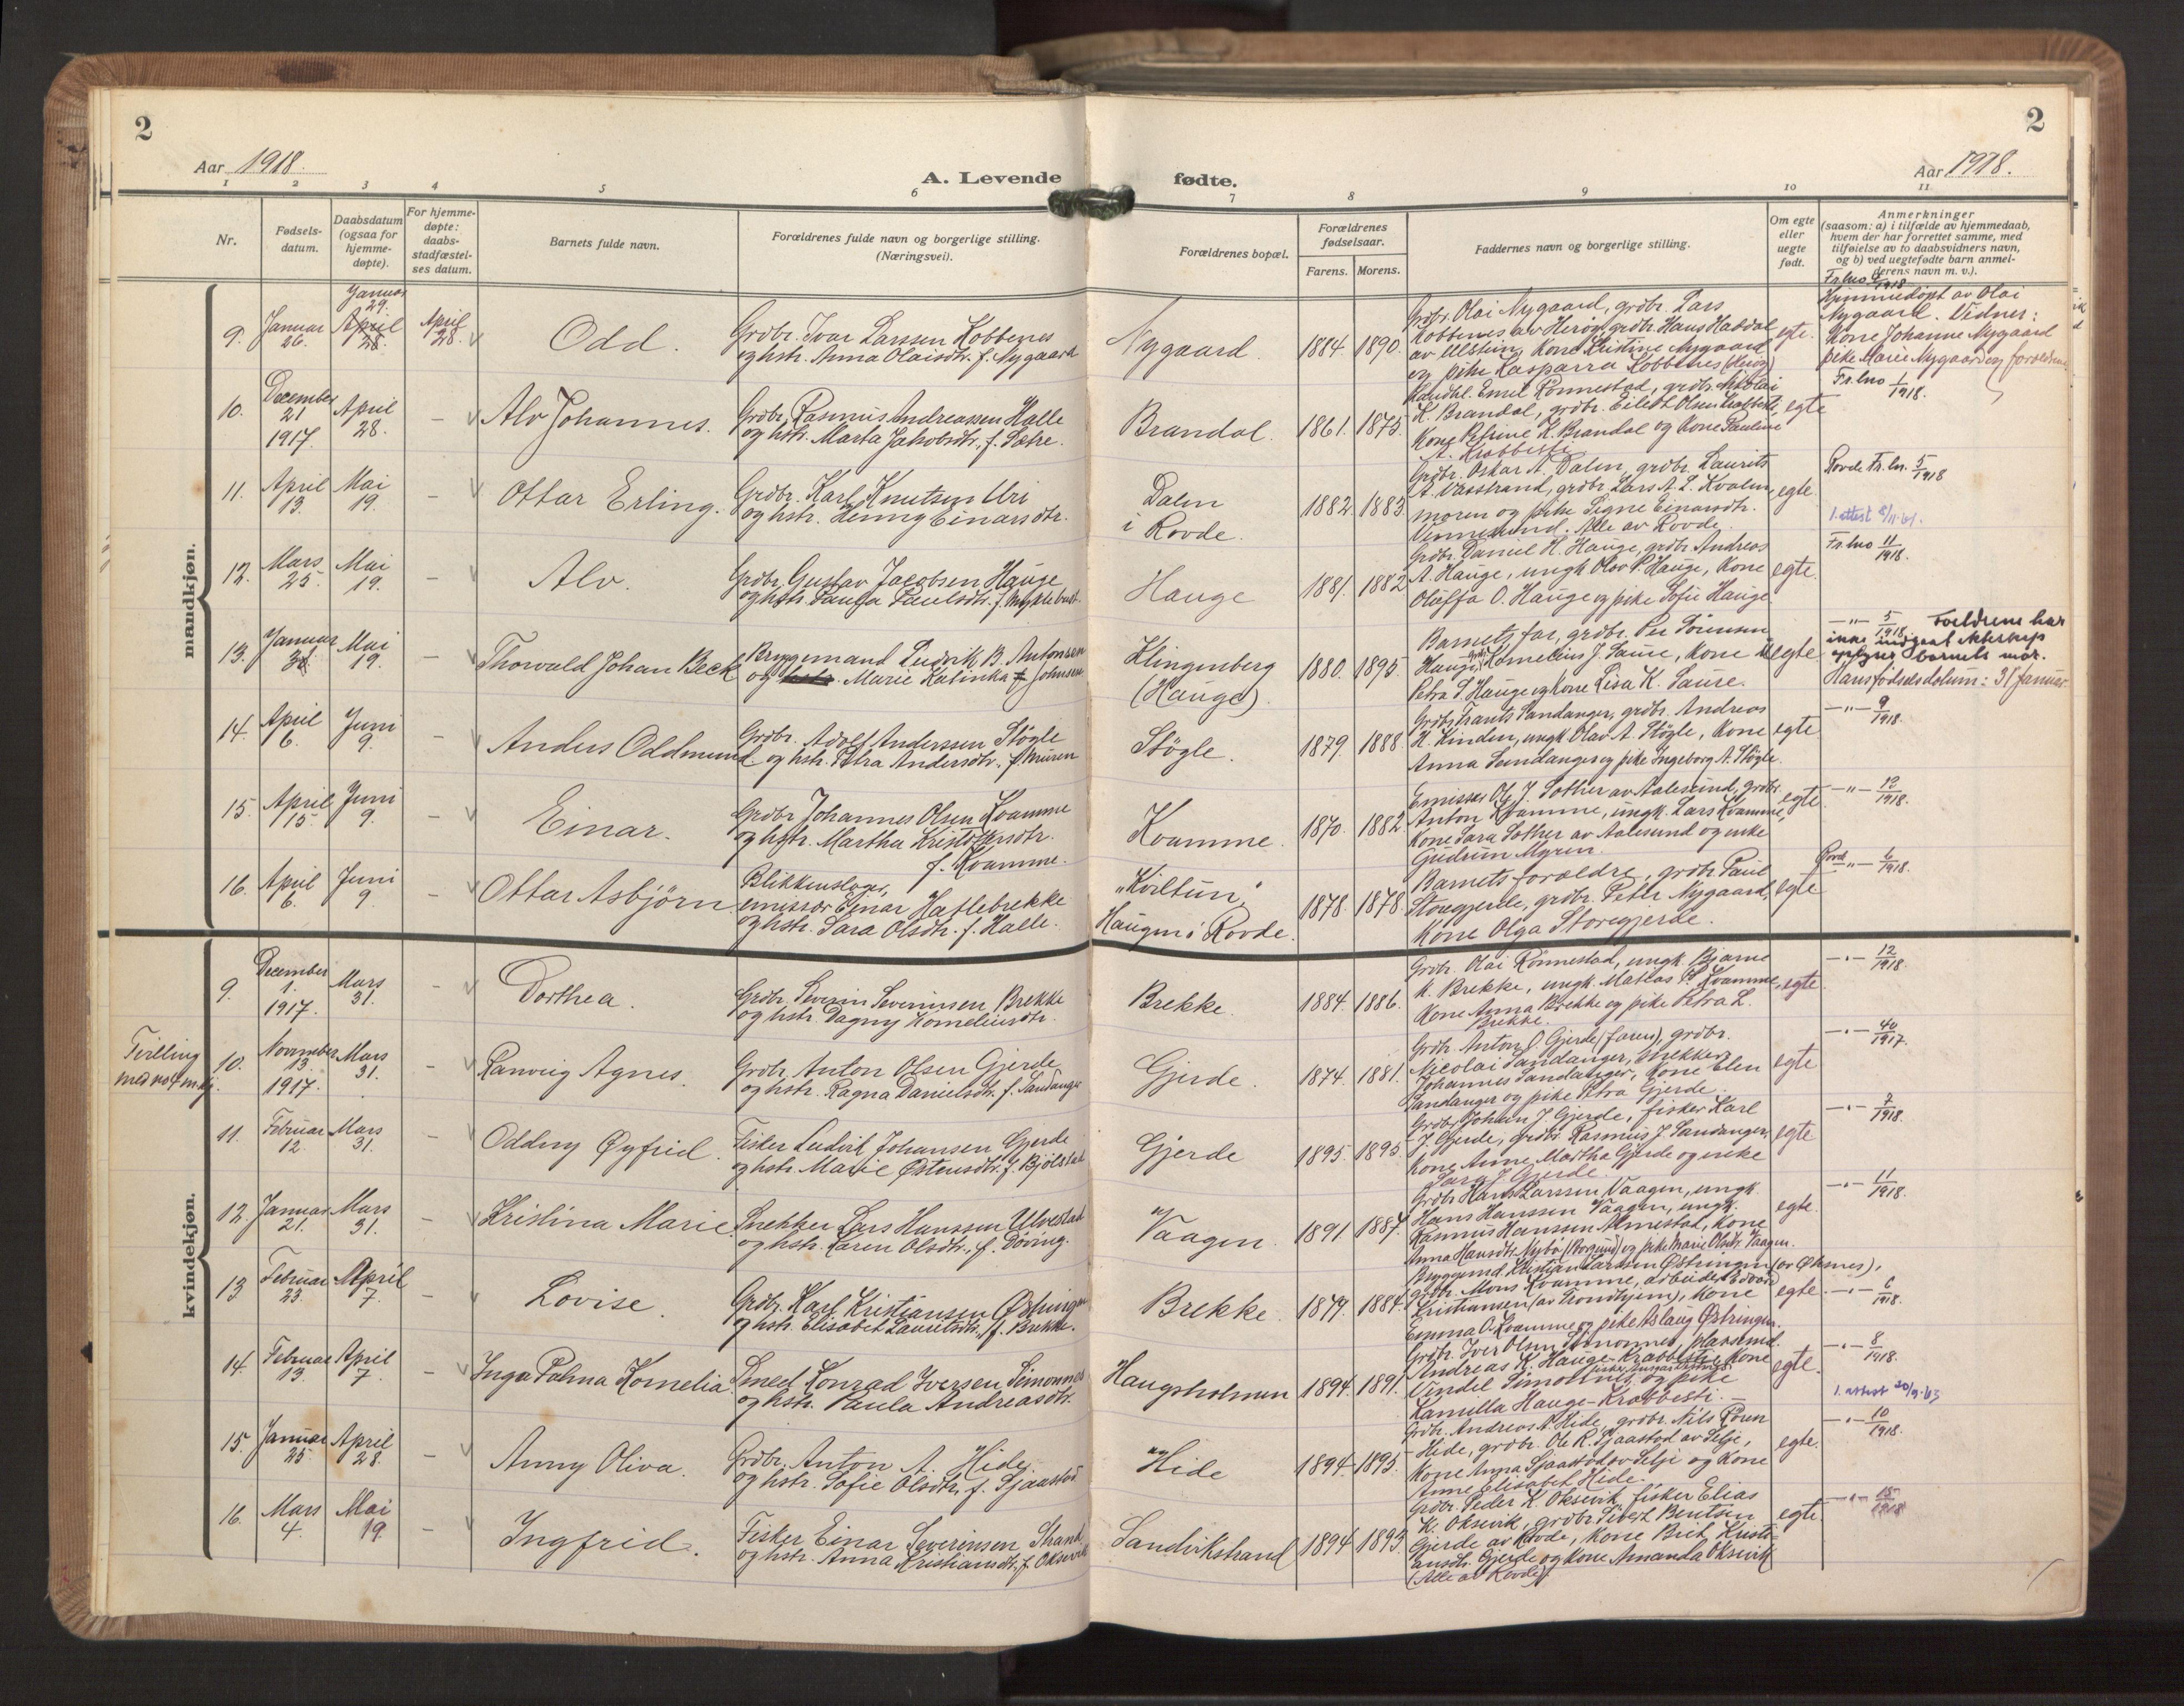 2
2
Aar 1918.
A. Levende
fødte.
Aar 1918.
1 2 3 4 5 6 7 8 9 10 11
Nr.
Fødsels-
datum.
Daabsdatum
(ogsaa for
hjemme-
døpte).
For hjemme-
døpte:
daabs-
stadfæstel-
ses datum.
Barnets fulde navn.
Forældrenes fulde navn og borgerlige stilling.
(Næringsvei).
Forældrenes bopæl.
Forældrenes
fødselsaar.
Farens. Morens.
Faddernes navn og borgerlige stilling.
Om egte
eller
uegte
født.
Anmerkninger
(saasom: a) i tilfælde av hjemmedaab,
hvem der har forrettet samme, med
tilføielse av to daabsvidners navn,
og b) ved uegtefødte barn anmel-
derens navn m. v.).
mandkjøn.
9. Januar 26. Januar 29. April 28. April 28. Odd.
Grdbr. Ivar Larssen Kobbenes
og hstr. Anna Olaisdtr. f. Nygaard
Nygaard. 1884. 1890.
Grdbr. Olai Nygaard, grdbr. Lars
Kobbenes av Herøy, grdbr. Hans Haddal
av Ulstein, Kone Kristine Nygaard
og pike Kasparra Kobbenes (Herøy)
egte.
Fr. lno 6/1918
Hjemmedøpt av Olai
Nygaard. Vidner:
Kone Johanne Nygaard
pike Marie Nygaard og foræeldrene
10. December 21 1917. April 28. - Alv Johannes.
Grdbr. Rasmus Andreassen Halle
og hstr. Marta Jakobsdtr. f. Sætre.
Brandal. 1861. 1875.
Handal. Emil Rønnestad, grdbr. Nikolai
K. Brandal, grdbr. Eilert Olsen Krabbesti,
Kone Petrine K. Brandal og Kone Pauline
A. Krabbesti
egte
Fr. lno 1/1918.
11. April 13. Mai 19. - Ottar Erling.
Grdbr. Karl Knutsen Uri
og hstr. Jenny Einarsdtr.
Dalen
i Rovde.
1882. 1883.
Grdbr. Oskar A. Dalen, grdbr. Laurits
A. Vasstrand, grdbr. Lars A. L. Kvalen,
moren og pike Signe Einarsdtr.
Vennesund. Alle av Rovde.
egte.
Rovde Fr. ln. 5/1918
1. attest 8/11-61.
12. Mars 25. Mai 19. - Alv.
Grdbr. Gustav Jacobsen Hauge
og hstr. Lauga Paulsdtr. f. Myklebust.
Hauge 1881. 1882
Grdbr. Daniel H. Hauge, grdbr. Andreas
A. Hauge, ungk. Olav P. Hauge, Kone
Oluffa O. Hauge og pike Sofie Hauge.
egte.
Fr. lno 11/1918.
13. Januar 31. Mai 19. - Thorvald Johan Beck
Bryggemand Ludvik B. Antonsen
og hstr. Marie Katinka f. Johnsen
Klingenberg
(Hauge).
1880. 1895.
Barnets far, grdbr. Per Sörensen
Hauge, Kornelius J. Saure, Kone
Petra S. Hauge og Kone Lisa K. Saure.
uegte
-"- 5/1918. Foreldrene har
ikke indgaat ekteskap
oplyser barnets mor.
Hans fødselsdatum: 31 Januar
14. April 6. Juni 9. - Anders Oddmund.
Grdbr. Adolf Anderssen Støgle
og hstr. Petra Andersdtr. f. Muren
Støgle. 1879. 1888.
Grdbr. Frants Sandanger, grdbr. Andreas
K. Kinden, ungk. Olav A. Støgle, Kone
Anna Sandanger og pike Ingeborg A. Støgle.
egte
-"- 9/1918.
15. April 15. Juni 9. - Einar.
Grdbr Johannes Olsen Kvamme
og hstr. Martha Kristoffersdtr.
f. Kvamme.
Kvamme. 1870. 1882.
Emissær Ole J. Sother av Aalesund, grdbr.
Anton Kvamme, ungk. Lars Kvamme,
Kone Sara Sother av Aalesund og enke
Gudrun Myren.
egte
-"- 12/1918.
16. April 6. Juni 9. - Ottar Asbjørn
Blikkenslager,
emissær Einar Hatlebrekke
og hstr. Sara Olsdtr. f. Halle.
"Kviltun",
Haugen i Rovde.
1878. 1878.
Barnets forældre, grdbr. Paul
Storegjerde, grdbr. Petter Nygaard,
Kone Olga Storegjerde.
egte
Rovd -"- 6/1918.
kvindekjøn.
9. December 1. 1917. Mars 31. - Dorthea.
Grdbr. Severin Severinsen Brekke
og hstr. Dagny Korneliusdtr.
Brekke. 1884. 1886.
Grdbr. Olai Rønnestad, ungk. Bjarne
K. Brekke, ungk. Mattias P. Kvamme,
Kone Anna Brekke og pike Petra L.
Brekke.
egte.
-"- 12/1918.
Tvilling
med no 4 mkj.
10. November 13. 1917. Mars 31. - Ranveig Agnes.
Grdbr. Anton Olsen Gjerde
og hstr. Ragna Danielsdtr. f. Sandanger
Gjerde. 1874. 1881.
Grdbr. Anton O. Gjerde (faren), grdbr.
Nicolai Sandanger, snekker
Johannes Sandanger, Kone Elen
Sandanger og pike Petra Gjerde.
egte
-"- 40/1917.
11. Februar 12. Mars 31. - Oddny Øyfrid.
Fisker Ludvik Johansen Gjerde
og hstr. Marie Østensdtr. f. Bjølstad
Gjerde 1895. 1895.
Grdbr. Johan J. Gjerde, fisker Karl
J. Gjerde, grdbr. Rasmus J. Sandanger,
Kone Anne Martha Gjerde og enke
Sara J. Gjerde.
egte
-"- 7/1918.
12. Januar 21. Mars 31. - Kristina Marie.
Snekker Lars Hanssen Ulvestad
og hstr. Karen Olsdtr. f. Døving.
Vaagen. 1891. 1887.
Grdbr Hans Larssen Vaagen, ungk.
Hans Hanssen Vaagen, ungk.
Rasmus Hanssen Almestad, Kone
Anna Hansdtr. Nybø (Borgund) og pike Marie Olsdtr. Vaagen.
egte.
-"- 11/1918.
13 Februar 23. April 7. - Lovise.
Grdbr. Karl Kristiansen Østringen
og hstr. Elisabet Lauritsdtr. f. Brekke.
Brekke. 1879. 1884.
Byggmd. Kristian Larssen Østringen (av Øksnes),
grdbr. Mons Kvamme, arbeider Edvard
Kristiansen (av Trondhjem), Kone
Emma O. Kvamme og pike Aslaug Østringen.
egte.
-"- 6/1918.
14. Februar 13. April 7. - Inga Palma Kornelia.
Smed Konrad Iversen Simonnes
og hstr. Paula Andreasdtr.
Haugsholmen 1894. 1891.
Grdbr. Iver Olsen Simonnes, plassmd.
Andreas K. Hauge-Krabbesti, Kone
Vendel Simonnes og pike
Kamilla Hauge-Krabbesti.
egte.
-"- 8/1918.
1. attest 20/9-63
15. Januar 25. April 28. - Anny Oliva.
Grdbr. Anton A. Hide
og hstr. Sofie Olsdtr. f. Sjaastad
Hide 1894. 1895.
Grdbr. Andreas A. Hide, grdbr. Nils Søren
Hide, grdbr. Ole R. Sjaastad av Selje,
Kone Anna Sjaastad av Selje og Kone
Anne Elisabet Hide.
egte.
-"- 10/1918.
16. Mars 4. Mai 19. - Ingfrid.
Fisker Einar Severinsen Strand
og hstr. Anna Kristiansdtr. f. Oksevik
Sandvikstrand 1894. 1893.
Grdbr. Peder K. Oksevik, fisker Elias
K. Oksevik, grdbr. Sivert Bentsen
Gjerde av Rovde, Kone Brit Kristi-
ansdtr. Gjerde og Kone Amanda Oksevik
(Alle av Rovde)
egte.
-"- 15/1918